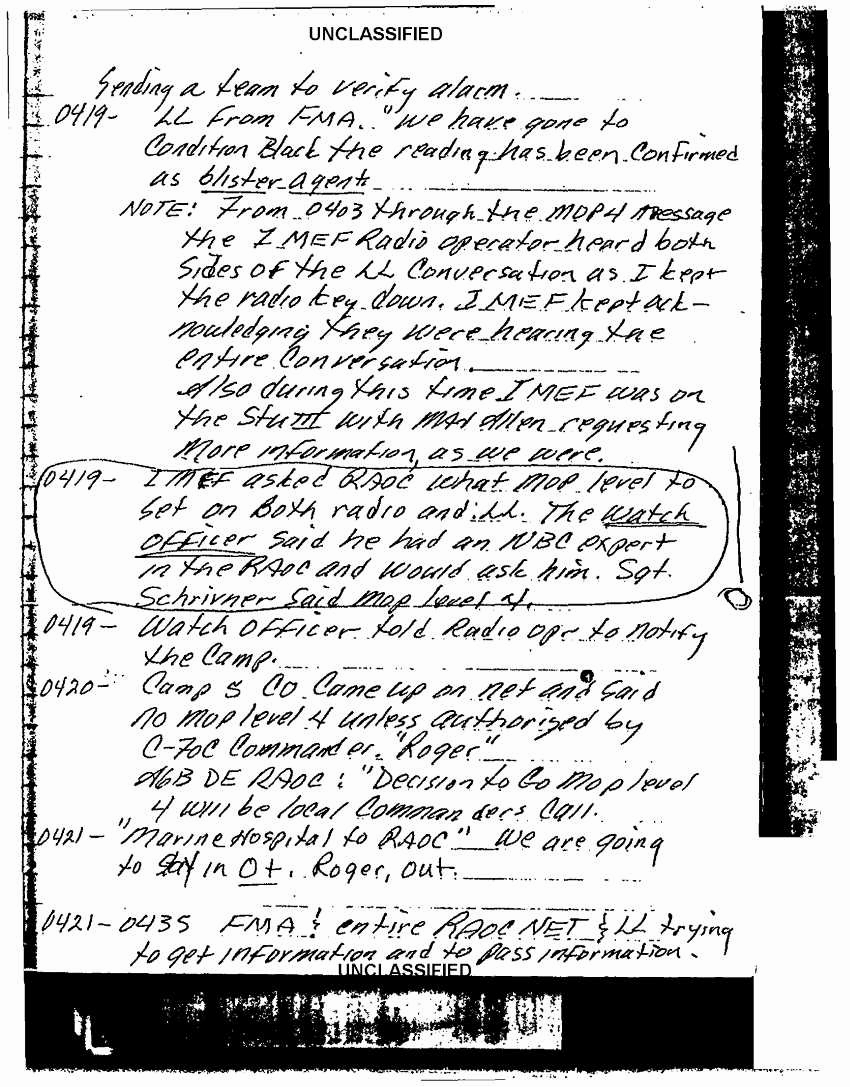 UNCLASSIFIED
Sending a team to verify alarm.
0419- LL from FMA. "We have gone to
Condition Black the reading has been Confirmed
as blister agent
NOTE: From 0403 through the MOP4 message
the I MEF Radio operator heard both
Sides of the LL Conversation as I kept
the radio key down. I MEF kept ack-
nowledging they were hearing the
entire Conversation.
Also during this time I MEF was on
the Stu III with MAJ Allen requesting
More information, as we were.
0419- I MEF asked RAOC what MOP level to
Set on Both radio and LL. The Watch
Officer Said he had an NBC expert
in the RAOC and would ask him. Sgt.
Schrivner Said Mop level 4.
0419- Watch Officer told Radio Opr to notify
the Camp.
0420- Camp 5 CO Came up on net and Said
no Mop level 4 unless authorized by
C-TOC Commander. "Roger"
A6B DE RAOC: "Decision to Go Mop level
4 will be local Commanders Call.
0421- "Marine Hospital to RAOC" We are going
to Stay in O+. Roger, Out.
0421-0435 FMA & entire RAOC NET & LL trying
to get information and to pass information.
UNCLASSIFIED